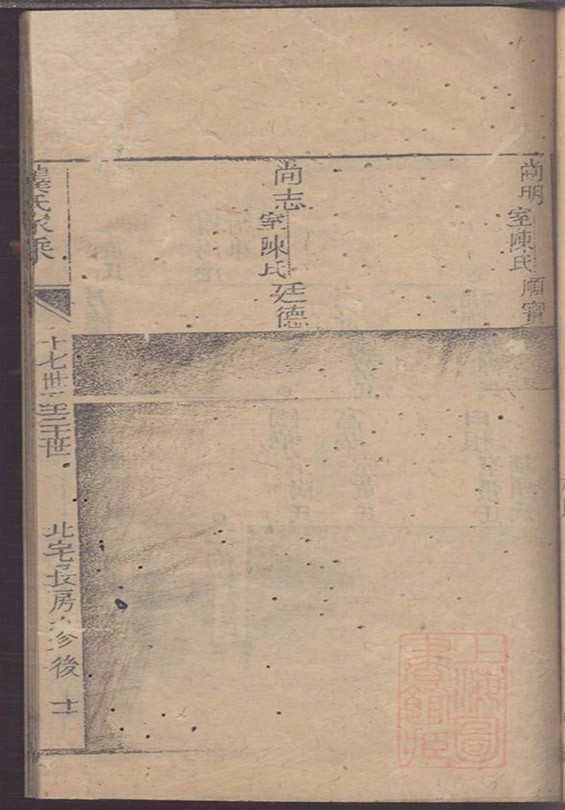 尚明
室陳氏
順寶
尚志
室陳氏
廷德
氏家乘
十七世至二十世
北宅長房珍後
十一
上海圖書館藏